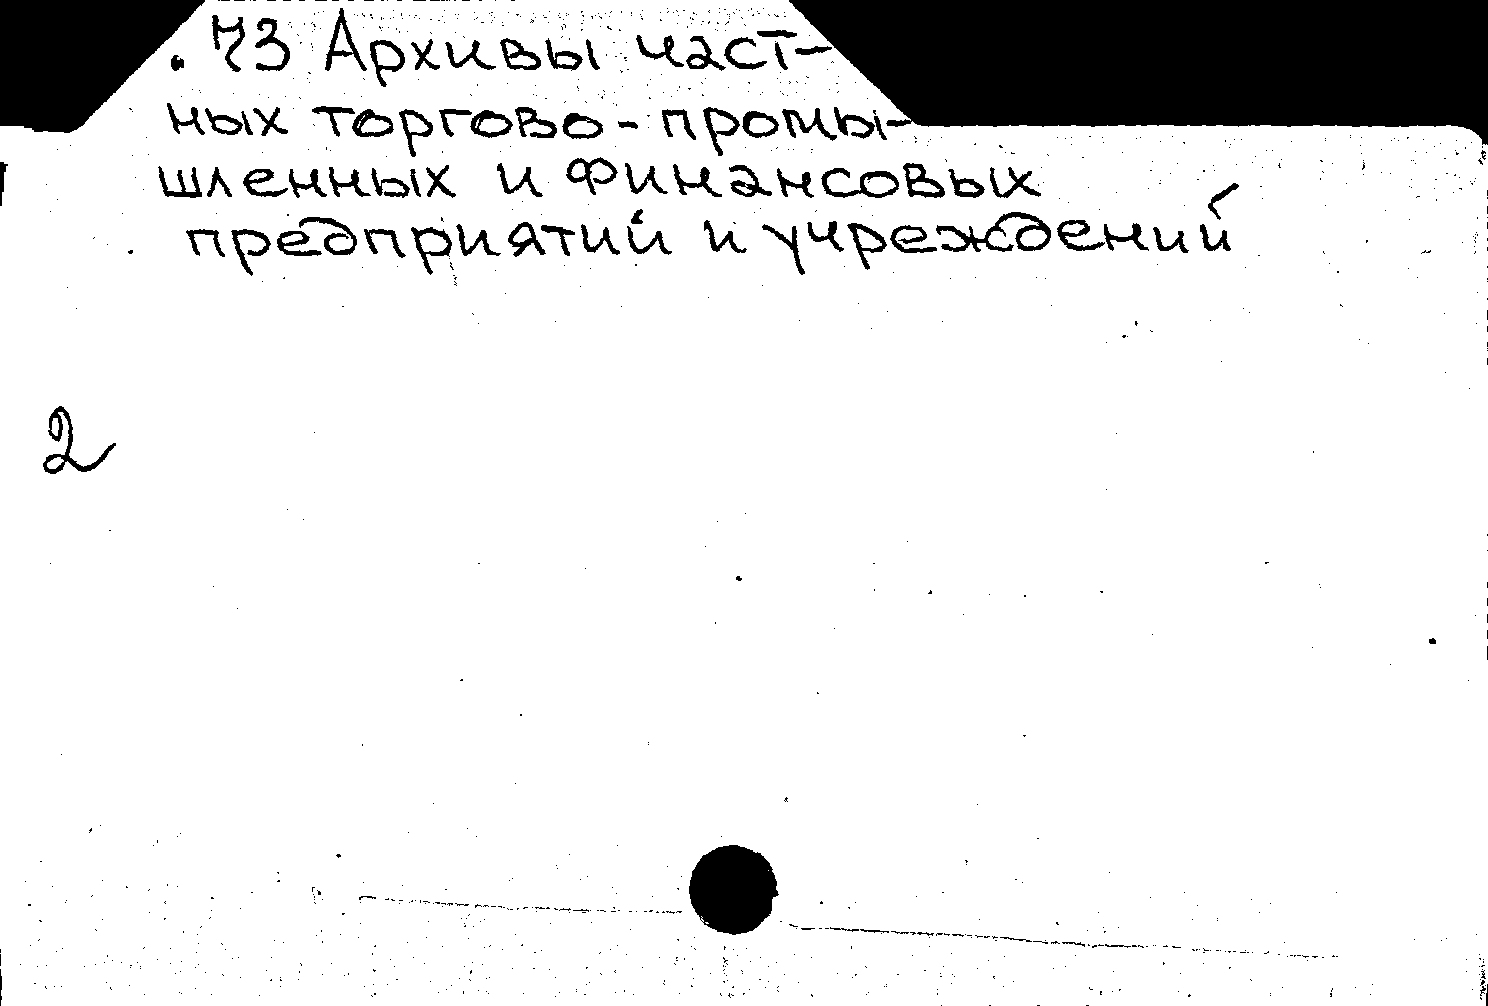 .73 Архивы част-
ных торгово-промы-
шленных и финансовых
предприятий и учреждений
2